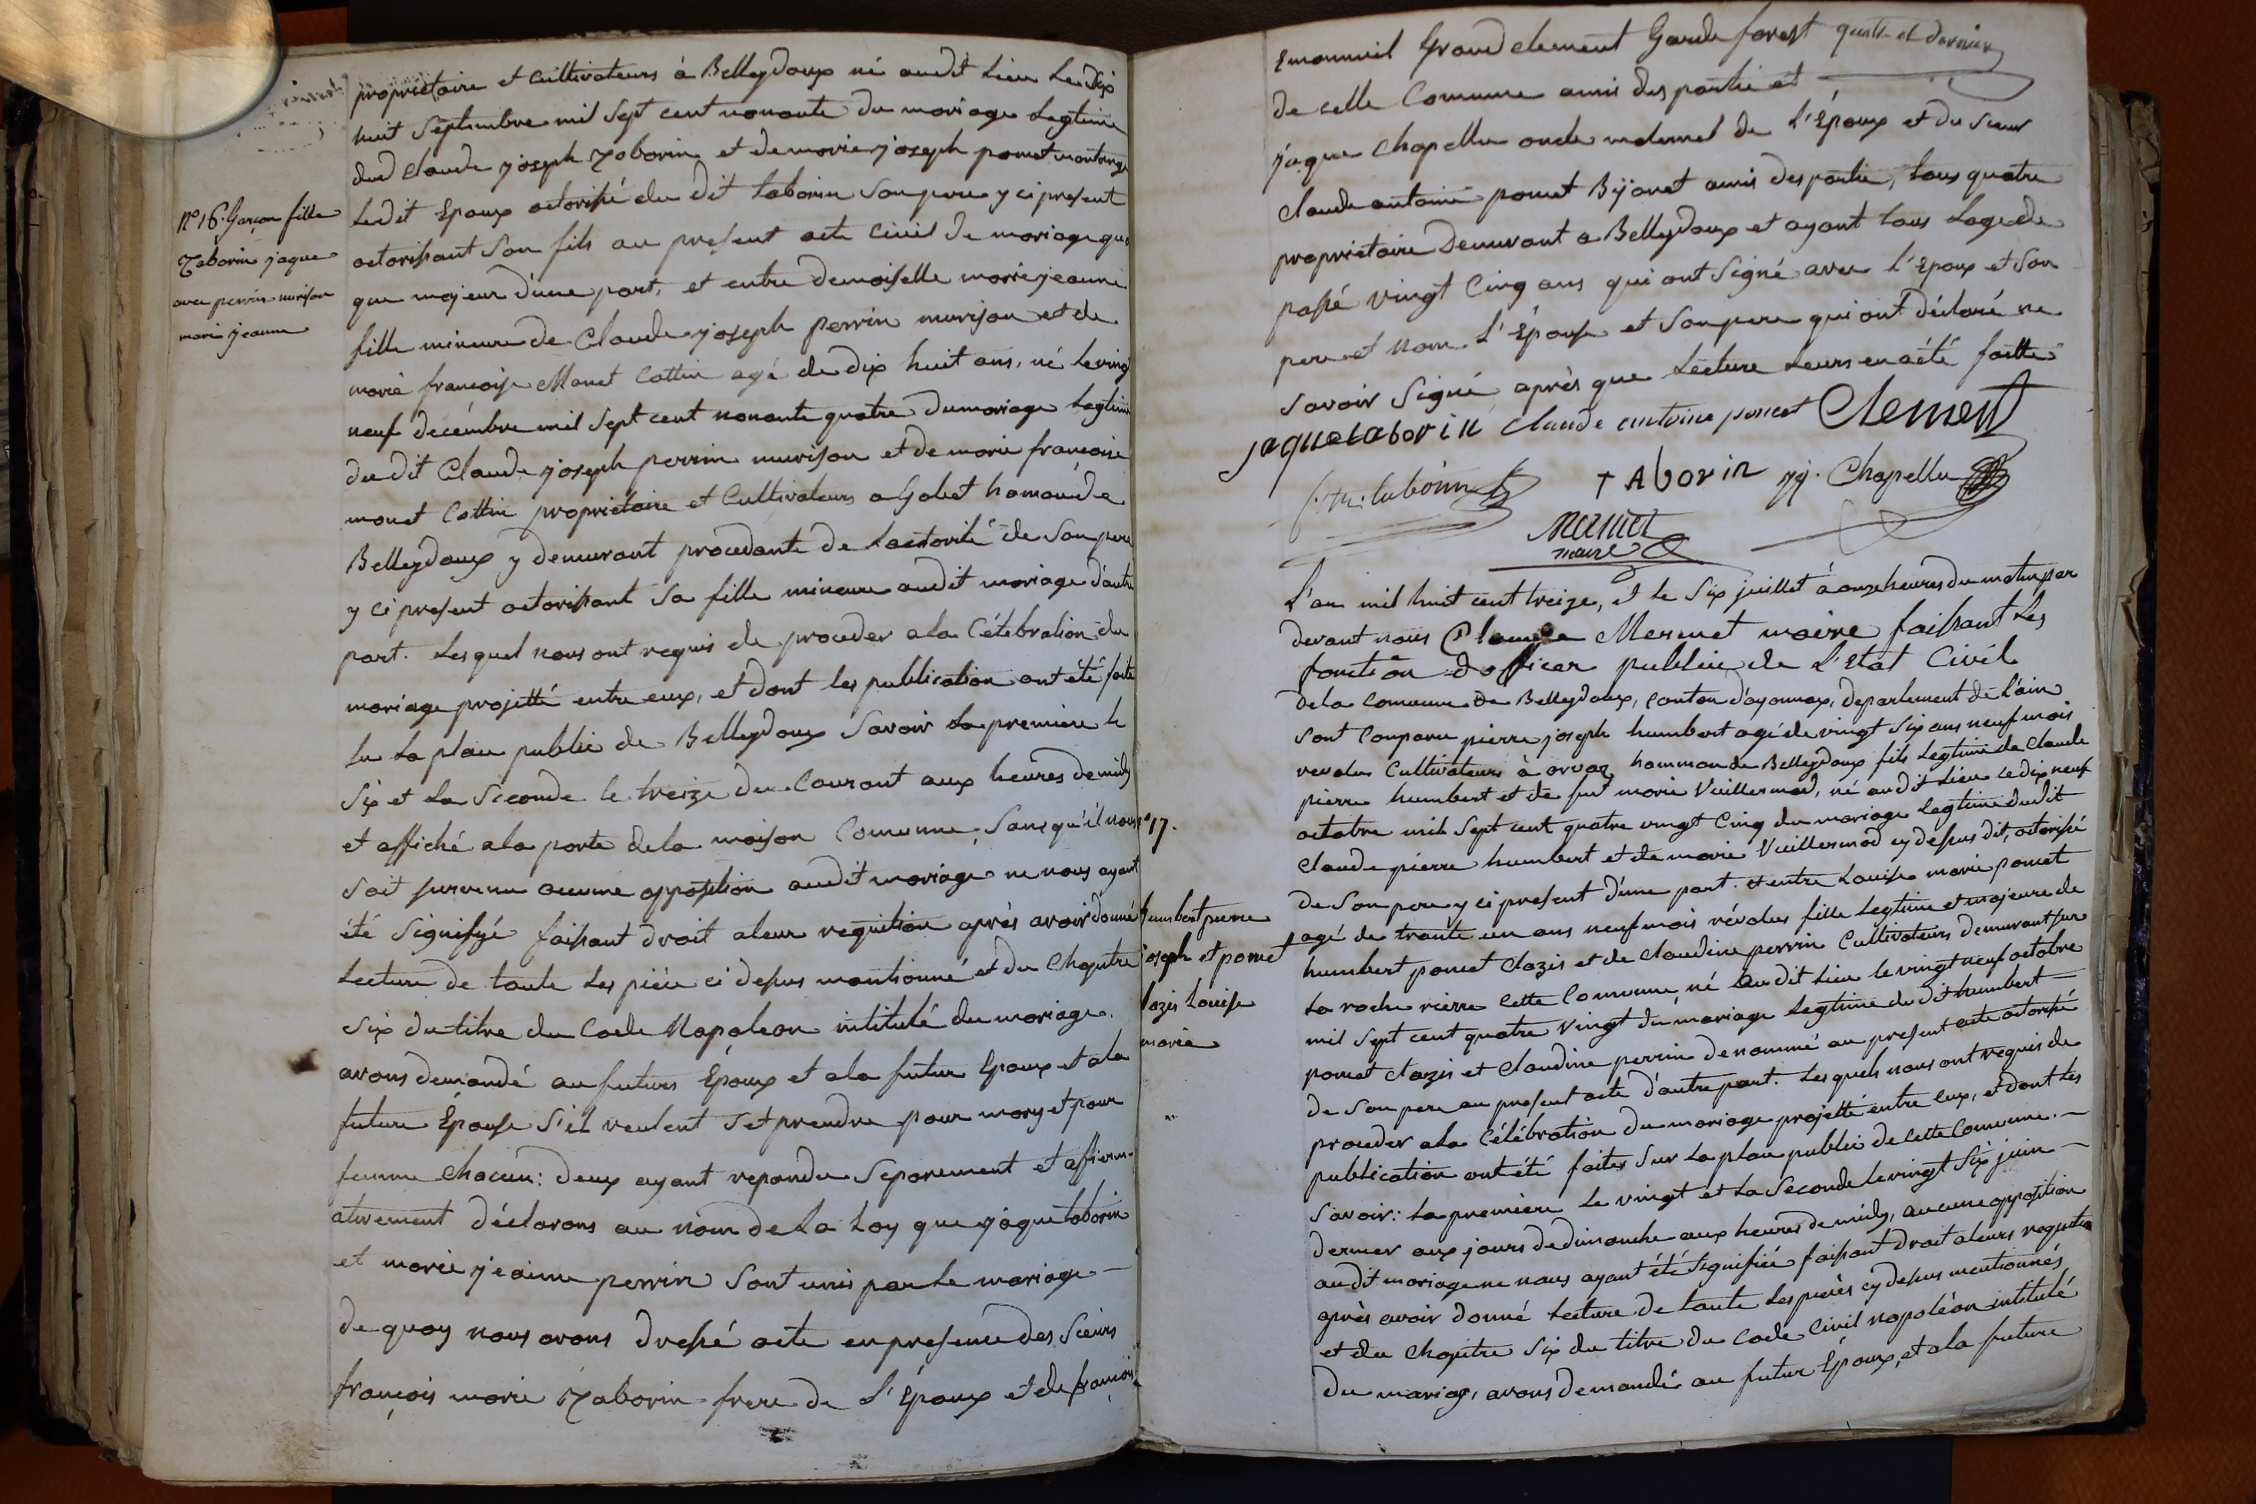 propriétaire et cultivateurs à Belleydoux né audit Lieu Le dix
huit Septembre mil Sept cent nonante du mariage Legtime
dud Claude joseph Taborin et de marie joseph pomet
Ledit Epoux actorisé du dit taborin Son pere y ci present
actorisant Son fils au present acte Civil de mariage
que majeur d'une part, et entre demoiselle marie jeanne
fille mineure de Claude joseph perrin murison et de
marie françoise Monet Cottin agé de dix huit ans, né le vingt
neuf decémbre mil Sept cent nonante quatre du mariage Legtime
du dit Claude joseph perrin murison et de marie françoise
monet Cottin propriétaire et Cultivateurs a Gobet hamau de
Belleydoux y demeurant procedante de Lactorité de Son pere
y ci present actorisant Sa fille mineure audit mariage d'autre
part. Lesquel nous ont requis de proceder a la Célébration du
mariage projetté entre eux, et dont les publication ont été faite
Su La place public de Belleydoux Savoir La premiere le
Six et La Seconde le treize du Courant aux heures de midy
et affiché a la porte de la maison Comunne, Sans qu'il nous
Soit Survenu aucune opposition audit mariage ne nous ayant
été Signifyé faisant droit a leur requition après avoir donné
Lecture de toute Les pièce ci desus mantionné et du Chapitre
Six du titre du Code Napoleon intitulé du mariage.
avons demandé au futurs Époux et a la futur Epoux et a la
future Épouse S'il veulent Set prendre pour mary et pour
femme Chacun: deux ayant repondu Separement et affirm-
ativement déclarons au nom de La Loy que jaque taborin
et marie jeanne perrin Sont unis par Le mariage —
De quoy nous avons dressé acte en presence des Sieurs
françois marie Taborin frere de L'Époux et de françois
n°16. Garçon fille
Taborin jaque
avec perrin murison
marie jeanne
Emanueil Grand clement Garde forest quatre et dernier
de celle Comune amis des partie et
jaque Chapellu oncle maternel de L'Époux et du Sieur
Claude antoine pomet Bijouet amis des partie, tous quatre
propriétaire Demeurant a Belleydoux et ayant tous Lage de
passé vingt Cinq ans qui ont Signé avec l'Epoux et Son
pere et non L'Épouse et Son pere qui ont déclaré ne
Savoir Signé après que Lecture Leurs en a été faitte
jaque taborin Claude antoine poncet Clement
taborin tAborin jq. Chapellu
Mermet
maire
L'an mil huit cent treize, et le Six juillet à onze heures du matin par
devant nous Claude Mermet maire faisant Les
fonction dofficier public de L'Etat Civil
de la Comunne de Belleydoux, Canton d'ayonnax, departement de l'ain
Sont Comparu pierre joseph humbert agé de vingt Six ans neuf mois
revolus Cultivateurs à orvaz hammau de Belleydoux fils Legtime de Claude
pierre humbert et de fut marie Vuillermod, né audit Lieu le dix neuf
octobre mil Sept cent quatre vingt Cinq du mariage Legtime dudit
Claude pierre humbert et de marie Vuillermod cy desus dit, actorisé
de Son pere y ci present d'une part. et entre Louise marie pomet
agé de trante un ans neuf mois révolus fille Legtime et majeure de
humbert pomet Clazis et de Claudine perrin Cultivateurs demeurant sur
La roche rierre Cette Comunne, né Audit Lieu le vingt neuf octobre
mil Sept cent quatre Vingt du mariage Legtime du dit humbert —
pomet Clazis et Claudine perrin denommé au present acte actorisé
de Son pere au present acte d'autre part. Lesquels nous ont requis de
proceder a la Célébration du mariage projetté entre eux, et dont Les
publication ont été faites Sur La place public de cette Comunne. —
Savoir: La premiere le vingt et La Seconde le vingt Six juin —
dernier aux jours de dimanche aux heures de midy, aucune opposition
audit mariage ne nous ayant été Signifiée faisant droit a leurs requition
après avoir donné Lecture de toute Les pieces cy desus mentionnés
et du Chapitre Six du titre du Code Civil napoléon intitulé
du mariag, avons demandé au futur Époux, et a la future
n°17.
humbert pierre
joseph et pomet
Clazis Louise
marie